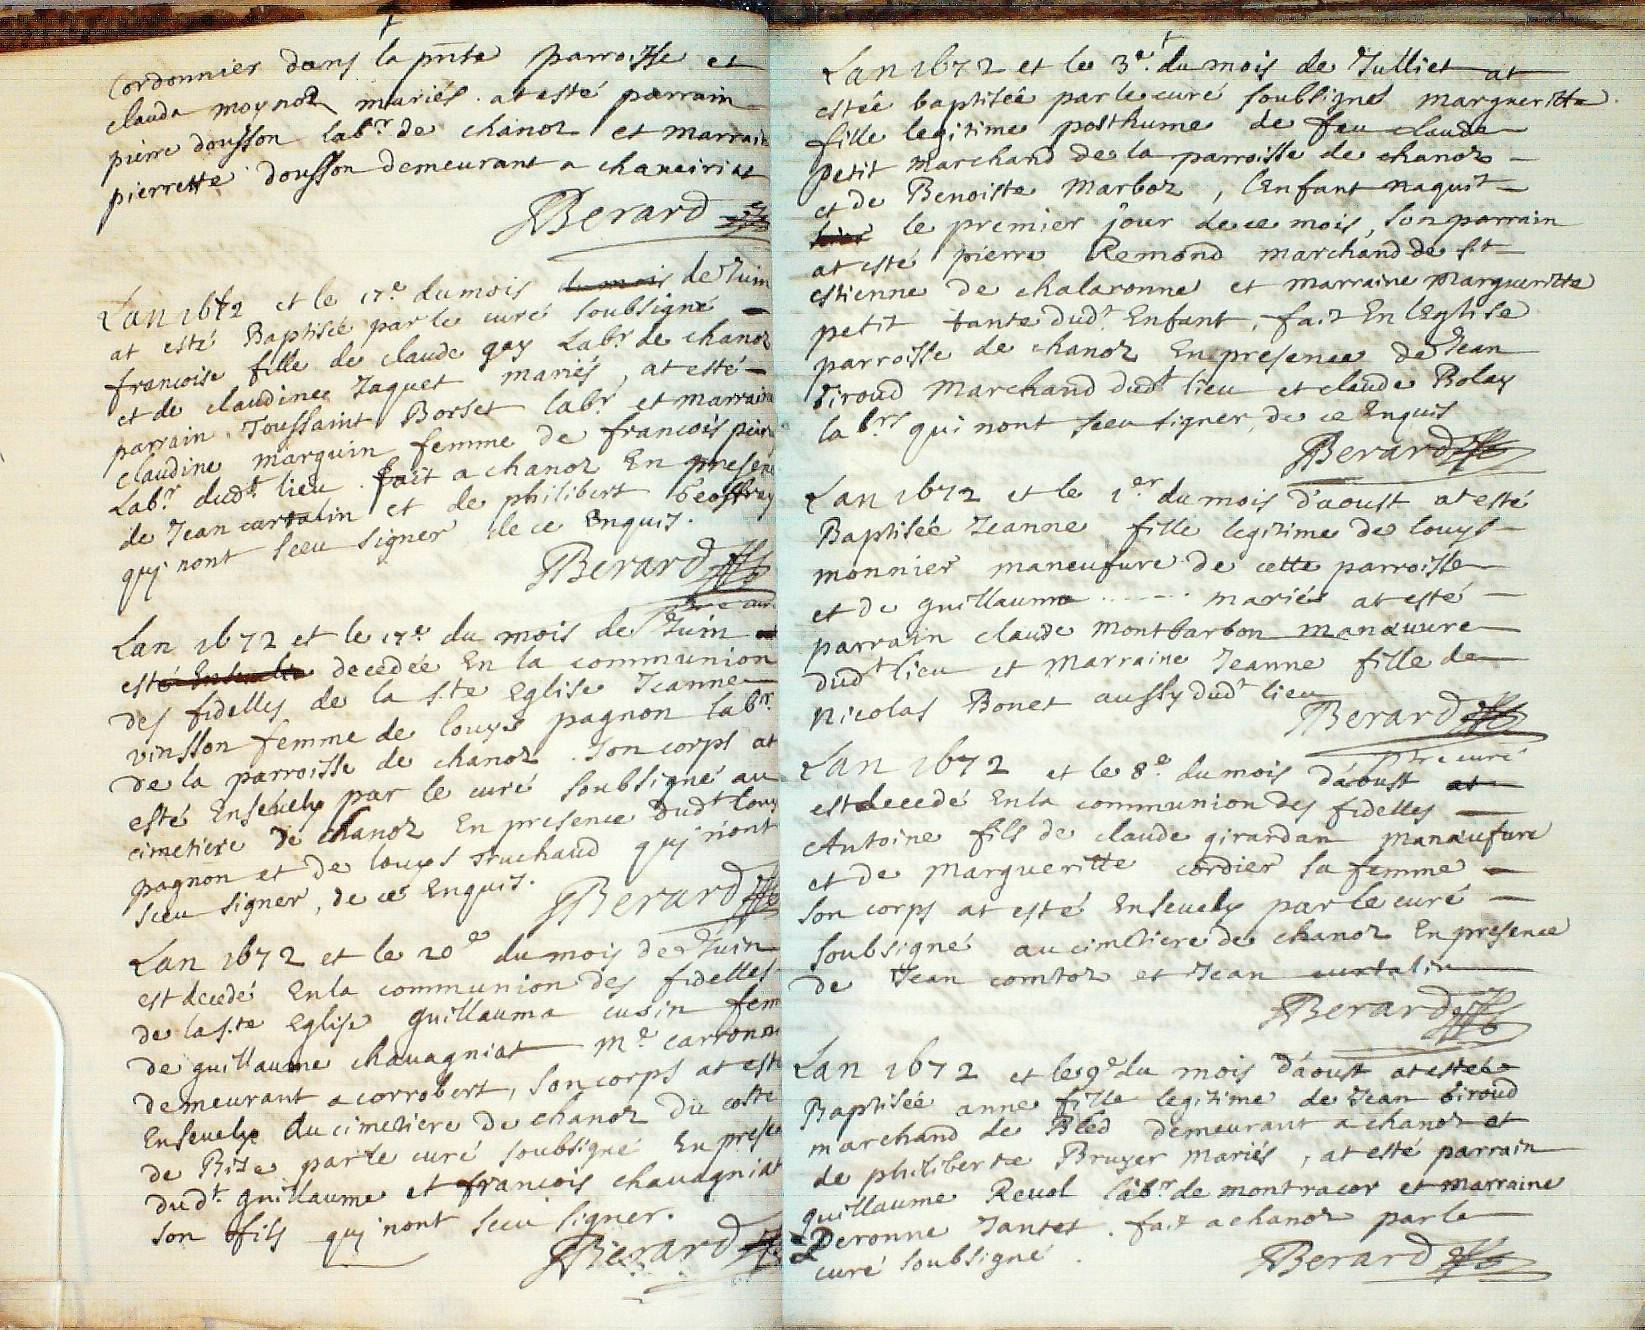 Cordonnier dans la pnte parroisse et
clauda moynoz mariés. at esté parrain
pierre dousson labr de chanoz et marraine
pierrette dousson demeurant a chaveiriat
Berard
Lan 1672 et le 17e du mois du mois de Juin
at esté Baptisée par le curé soubsigné
francoise fille de claude gay Labr de chanoz
et de claudine Jaquet mariés, at esté
parrain Toussaint Borset labr et marraine
claudine marguin femme de francois
Labr dudt lieu. fait a chanoz En presence
de Jean curtalin et de philibert Geoffray
quy nont sceu signer de ce Enquis.
Berard
Lan 1672 et le 17e du mois de Juin
esté Ensevelie decedée En la communion
des fidelles de la ste Eglise Jeanne
vinsson femme de louys pagnon labr
de la parroisse de chanoz. son corps at
esté Ensevely par le curé soubsigné au
cimetiere de chanoz En presence dudt louys
pagnon et de louys truchaud quy n'ont
sceu signer, de ce Enquis.
Berard
Lan 1672 et le 20e du mois de Juin
est decedé En la communion des fidelles
de la ste Eglise guillauma cusin fem
de guillaume chavagniat me carronni
demeurant a corrobert, son corps at esté
Ensevely au cimetiere de chanoz du costé
de Bize par le curé soubsigné En presence
dudt guillaume et francois chavagniat
son fils quy nont sceu signer.
Berard
Lan 1672 et le 3e du mois de Julliet at
estée baptisée par le curé soubsigné margueritte
fille legitime posthume de feu claude
petit marchand de la parroisse de chanoz
et de Benoiste Marboz, l'Enfant naquit
le premier jour de ce mois, son parrain
at esté pierre Remond marchand de st
estienne de chalaronne et marraine margueritte
petit tante dudt Enfant, fait En l'Eglise
parroisse de chanoz En presence de Jean
Giroud marchand dudt lieu et claude Bolay
labrs qui nont sceu signer, de ce Enquis
Berard
Lan 1672 et le 1er du mois d'aoust at esté
Baptisée Jeanne fille legitime de louys
monnier maneufure de cette parroisse
et de guillauma ....... mariés at esté
parrain claude montbarbon manœuvre
dudt lieu et marraine Jeanne fille de
Nicolas Bonet aussy dudt lieu
Berard
ptre curé
Lan 1672 et le 8e du mois d'aoust at
est decedé En la communion des fidelles
Antoine fils de claude girardan manœufure
et de margueritte cordier sa femme
son corps at esté Ensevely par le curé
soubsigné au cimetiere de chanoz En presence
de Jean comtoz et Jean curtalin
Berard
Lan 1672 et le 9e du mois d'aoust at estée
Baptisée anne fille legitime de Jean Giroud
marchand de Bled demeurant a chanoz et
de philiberte Bruyer mariés, at esté parrain
guillaume Revol labr de montracor et marraine
Peronne Jantet. fait a chanoz par le
curé soubsigné.
Berard